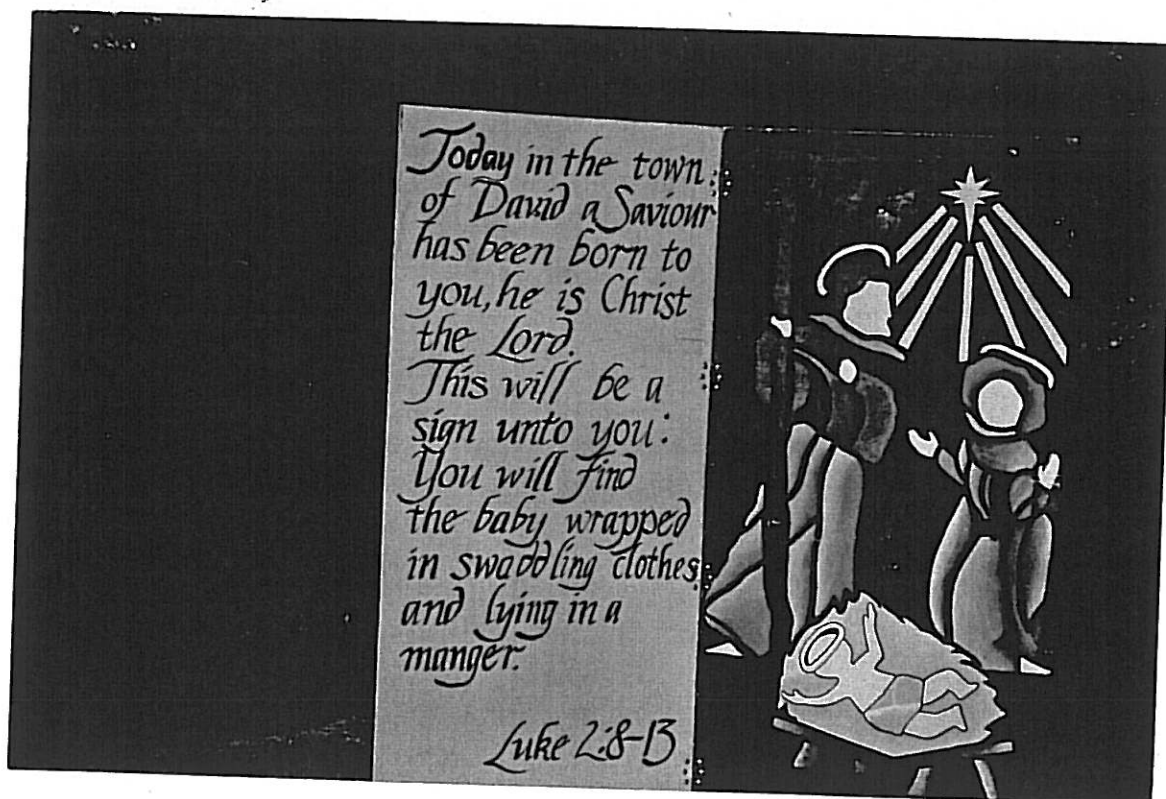 Today in the town
of David a Saviour
has been born to
you, he is Christ
the Lord.
This will be a
sign unto you:
You will find
the baby wrapped
in swaddling clothes
and lying in a
manger.
Luke 2:8-13